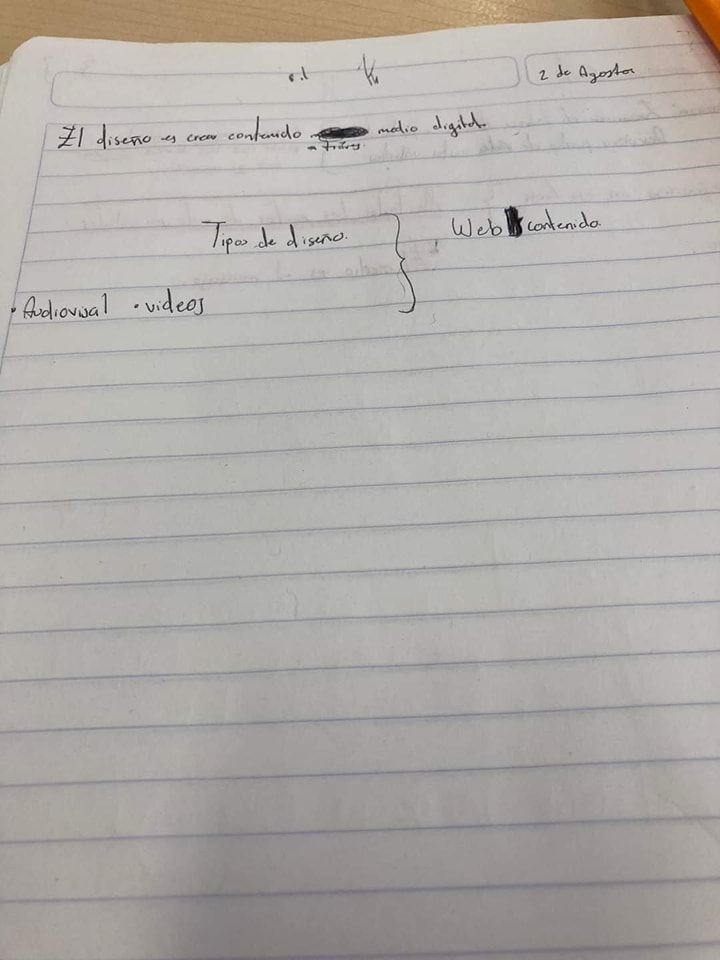 2 de Agosto
El diseño es crear contenido medio digital.
a través
Tipos de diseño. } Web contenido.
• Audiovisal • videos